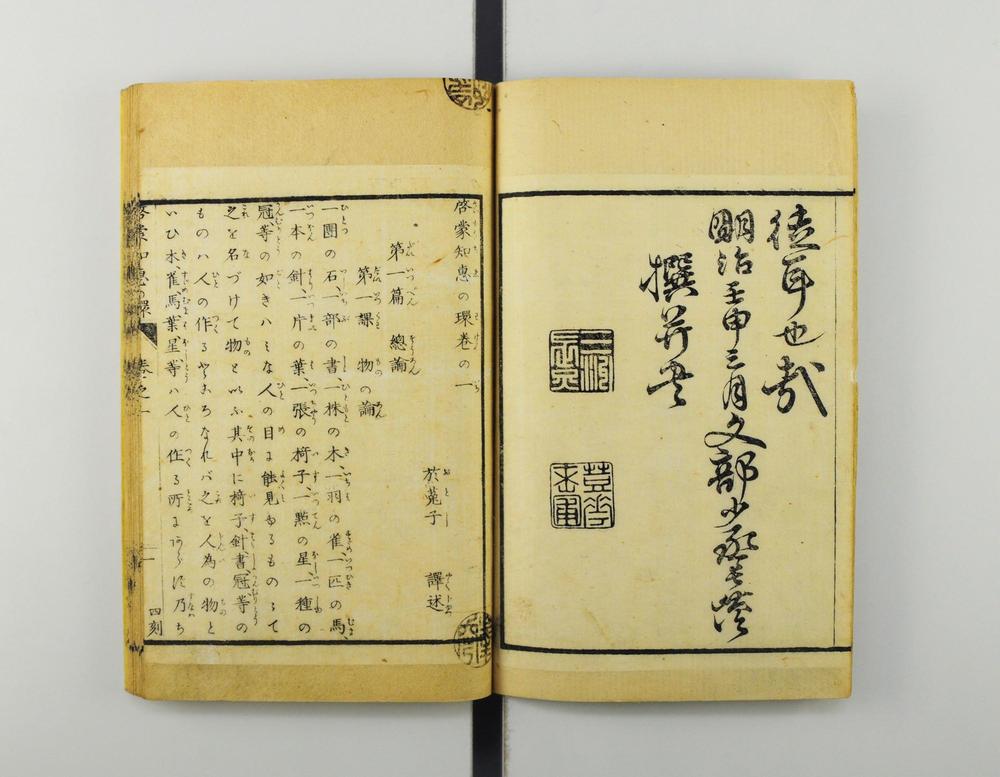 徒耳也哉
明治壬申三月文部少丞
撰并書
啓蒙知惠の環巻の一
於菟子 譯述
第一篇 總論
第一課 物の論
一團の石、一部の書、一株の木、一羽の雀、一匹の馬、
一本の針、一片の葉、一張の椅子、一㸃の星、一種の
冠、等の如きハミな人の目に能見ゆるものにて
之を名づけて物と以ふ其中に椅子、針、書、冠、等の
ものハ人の作るところなれバ之を人為の物と
いひ木、雀、馬、葉、星、等ハ人の作る所にあらず乃ち
啓蒙知惠の環 巻之一 一 四刻